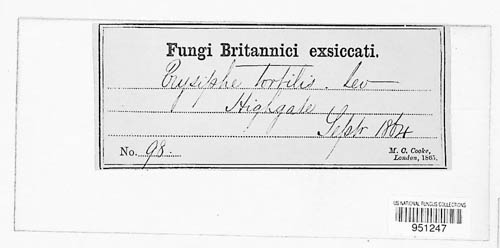 Fungi Britannici exsiccati.
Erysiphe tortilis. Lev
Highgate
Septr 1864
No. 98.
M. C. Cooke,
London, 1865.
US NATIONAL FUNGUS COLLECTIONS
951247